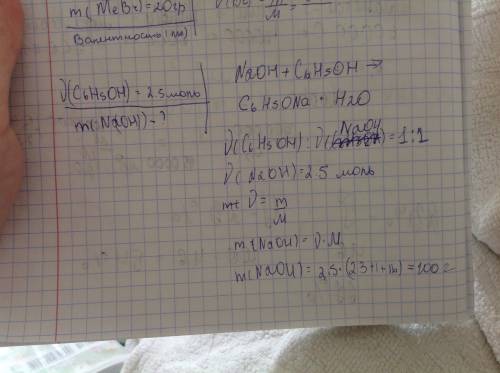 m(MeBr)=20гр
Валентность
ν(C6H5OH) = 2.5 моль
m(NaOH) - ?
NaOH + C6H5OH →
C6H5ONa · H2O
ν(C6H5OH) : ν(NaOH) = 1:1
ν(NaOH) = 2.5 моль
ν = m/M
m(NaOH) = ν·M
m(NaOH) = 2.5·(23+1+16) = 100 г